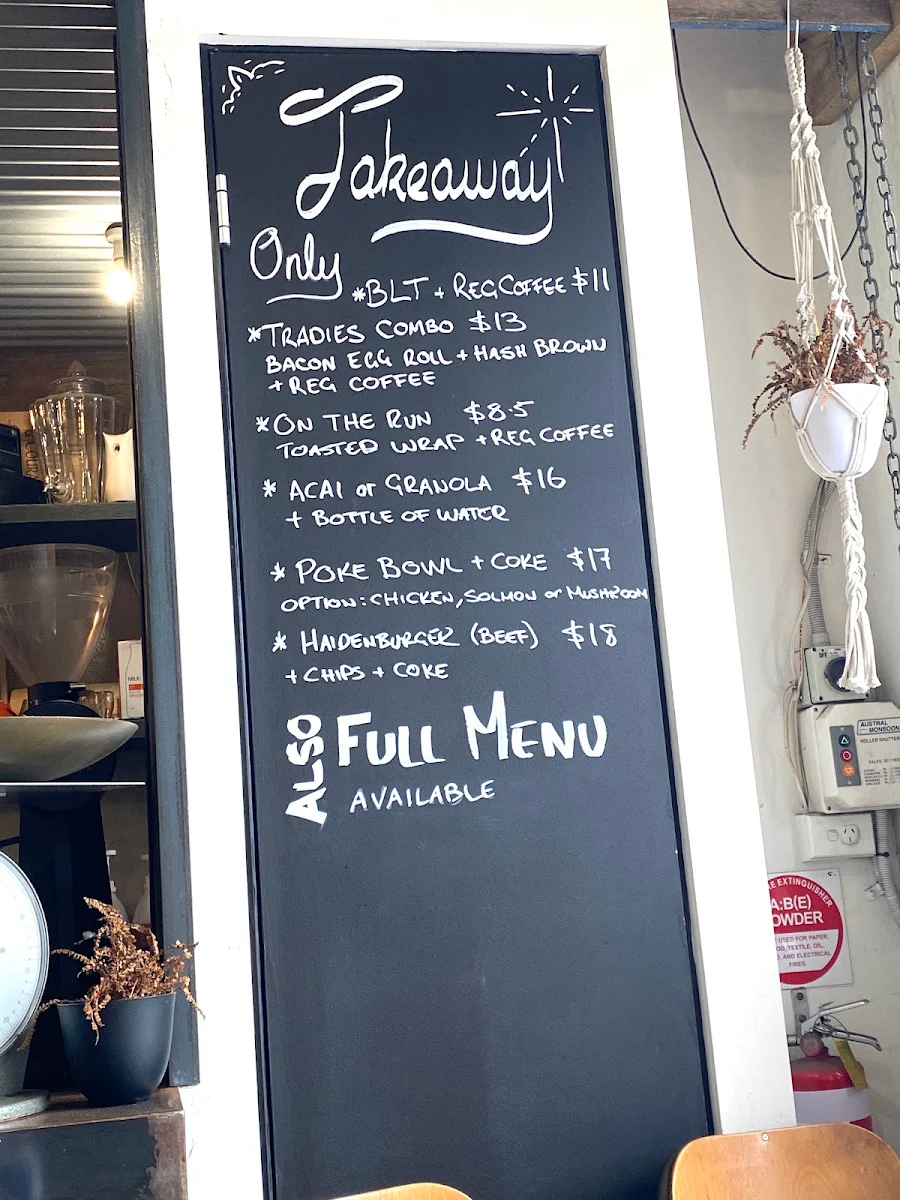 Takeaway
Only
*BLT + REG COFFEE $11
*TRADIES COMBO $13
BACON EGG ROLL + HASH BROWN
+ REG COFFEE
*ON THE RUN $8.5
TOASTED WRAP + REG COFFEE
* ACAI or GRANOLA $16
+ BOTTLE OF WATER
* POKE BOWL + COKE $17
OPTION: CHICKEN, SOLMON or MUSHROOM
* HAIDENBURGER (BEEF) $18
+ CHIPS + COKE
ALSO FULL MENU
AVAILABLE
MILK
OFF
AUSTRAL
MONSOON
ROLLER SHUTTER
E EXTINGUISHER
A:B(E)
OWDER
USED FOR PAPER,
TEXTILE, OIL,
AND ELECTRICAL
FIRES